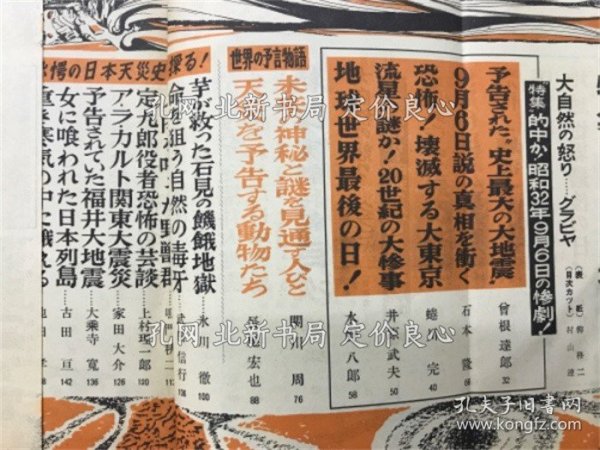 大自然の怒り……グラビヤ
特集 的中か!昭和32年9月6日の惨劇!
予告された"史上最大の大地震"
曾根達郎 32
9月6日説の真相を衝く
石本隆
恐怖!壊滅する大東京
完 40
流星の謎か!20世紀の大惨事
井原武夫 50
地球世界最後の日!
八郎 58
世界の予言物語
未来の神秘と謎を見通す人びと
関川周 76
天災を予告する動物たち
宏也 88
愕の日本天災史探る!
芋が救った石見の饑餓地獄
氷川徹 100
命を狙う自然の毒牙
信行 108
定九郎役者恐怖の芸談
上村 一郎 120
ア・ラ・カルト関東大震災
家田大介 126
予告されていた福井大地震
大乗寺寛 136
女に喰われた日本列島
古田亘 142
孔网 北新书局 定价良心
孔网 北新书局 定价良心
孔网 北新书局 定价良心
孔夫子旧书网